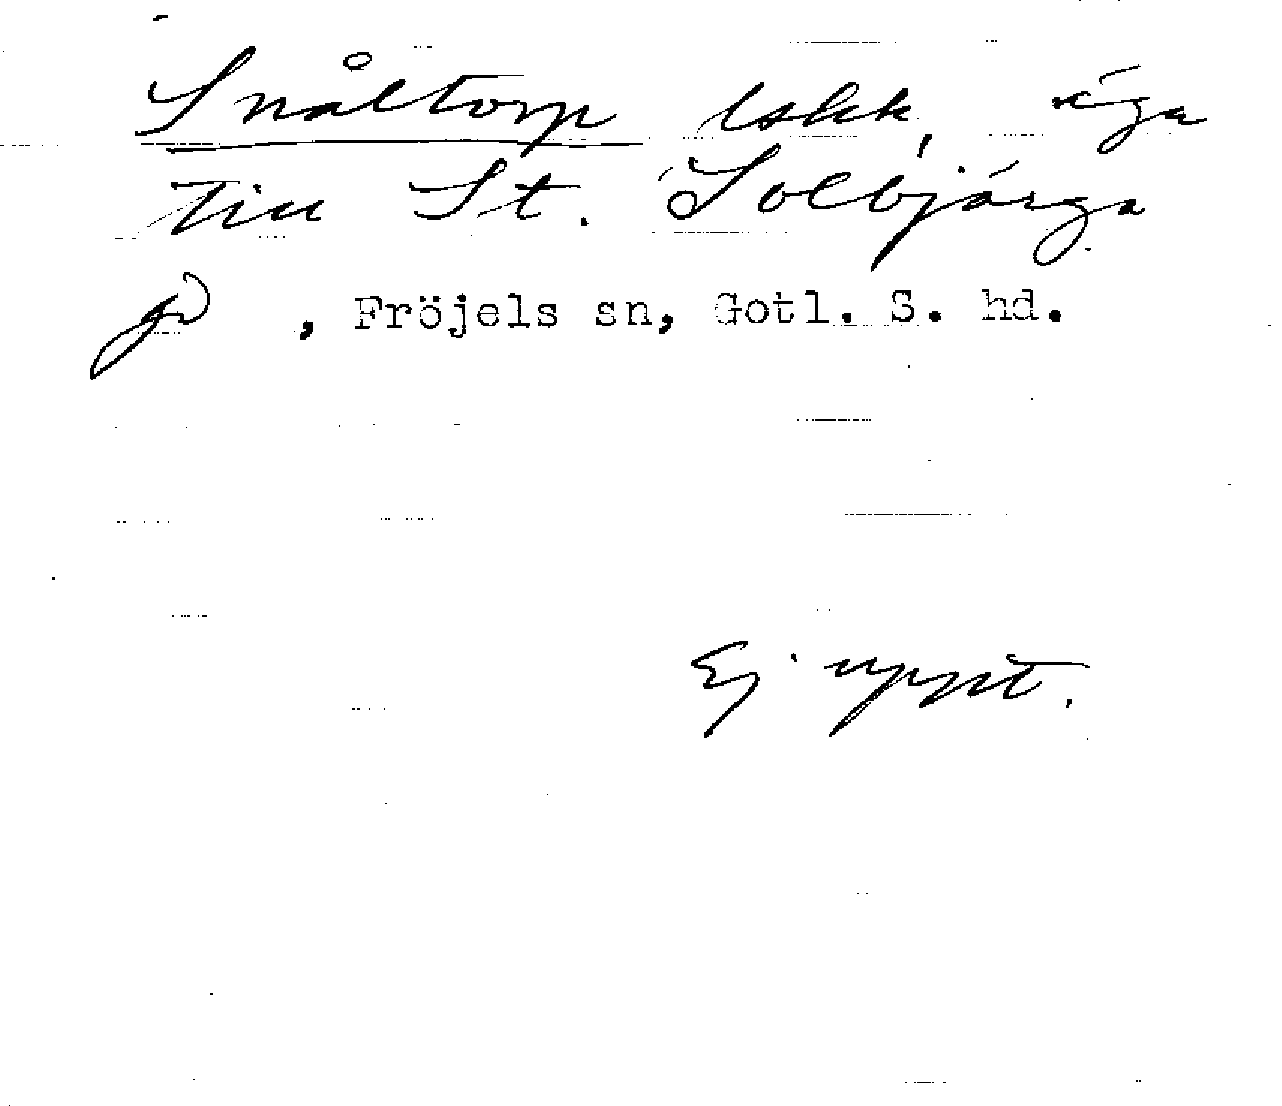 Snåltorp lskk, äga
till St. Solbjärga
gd , Fröjels sn, Gotl. S. hd.
Ej uppt.